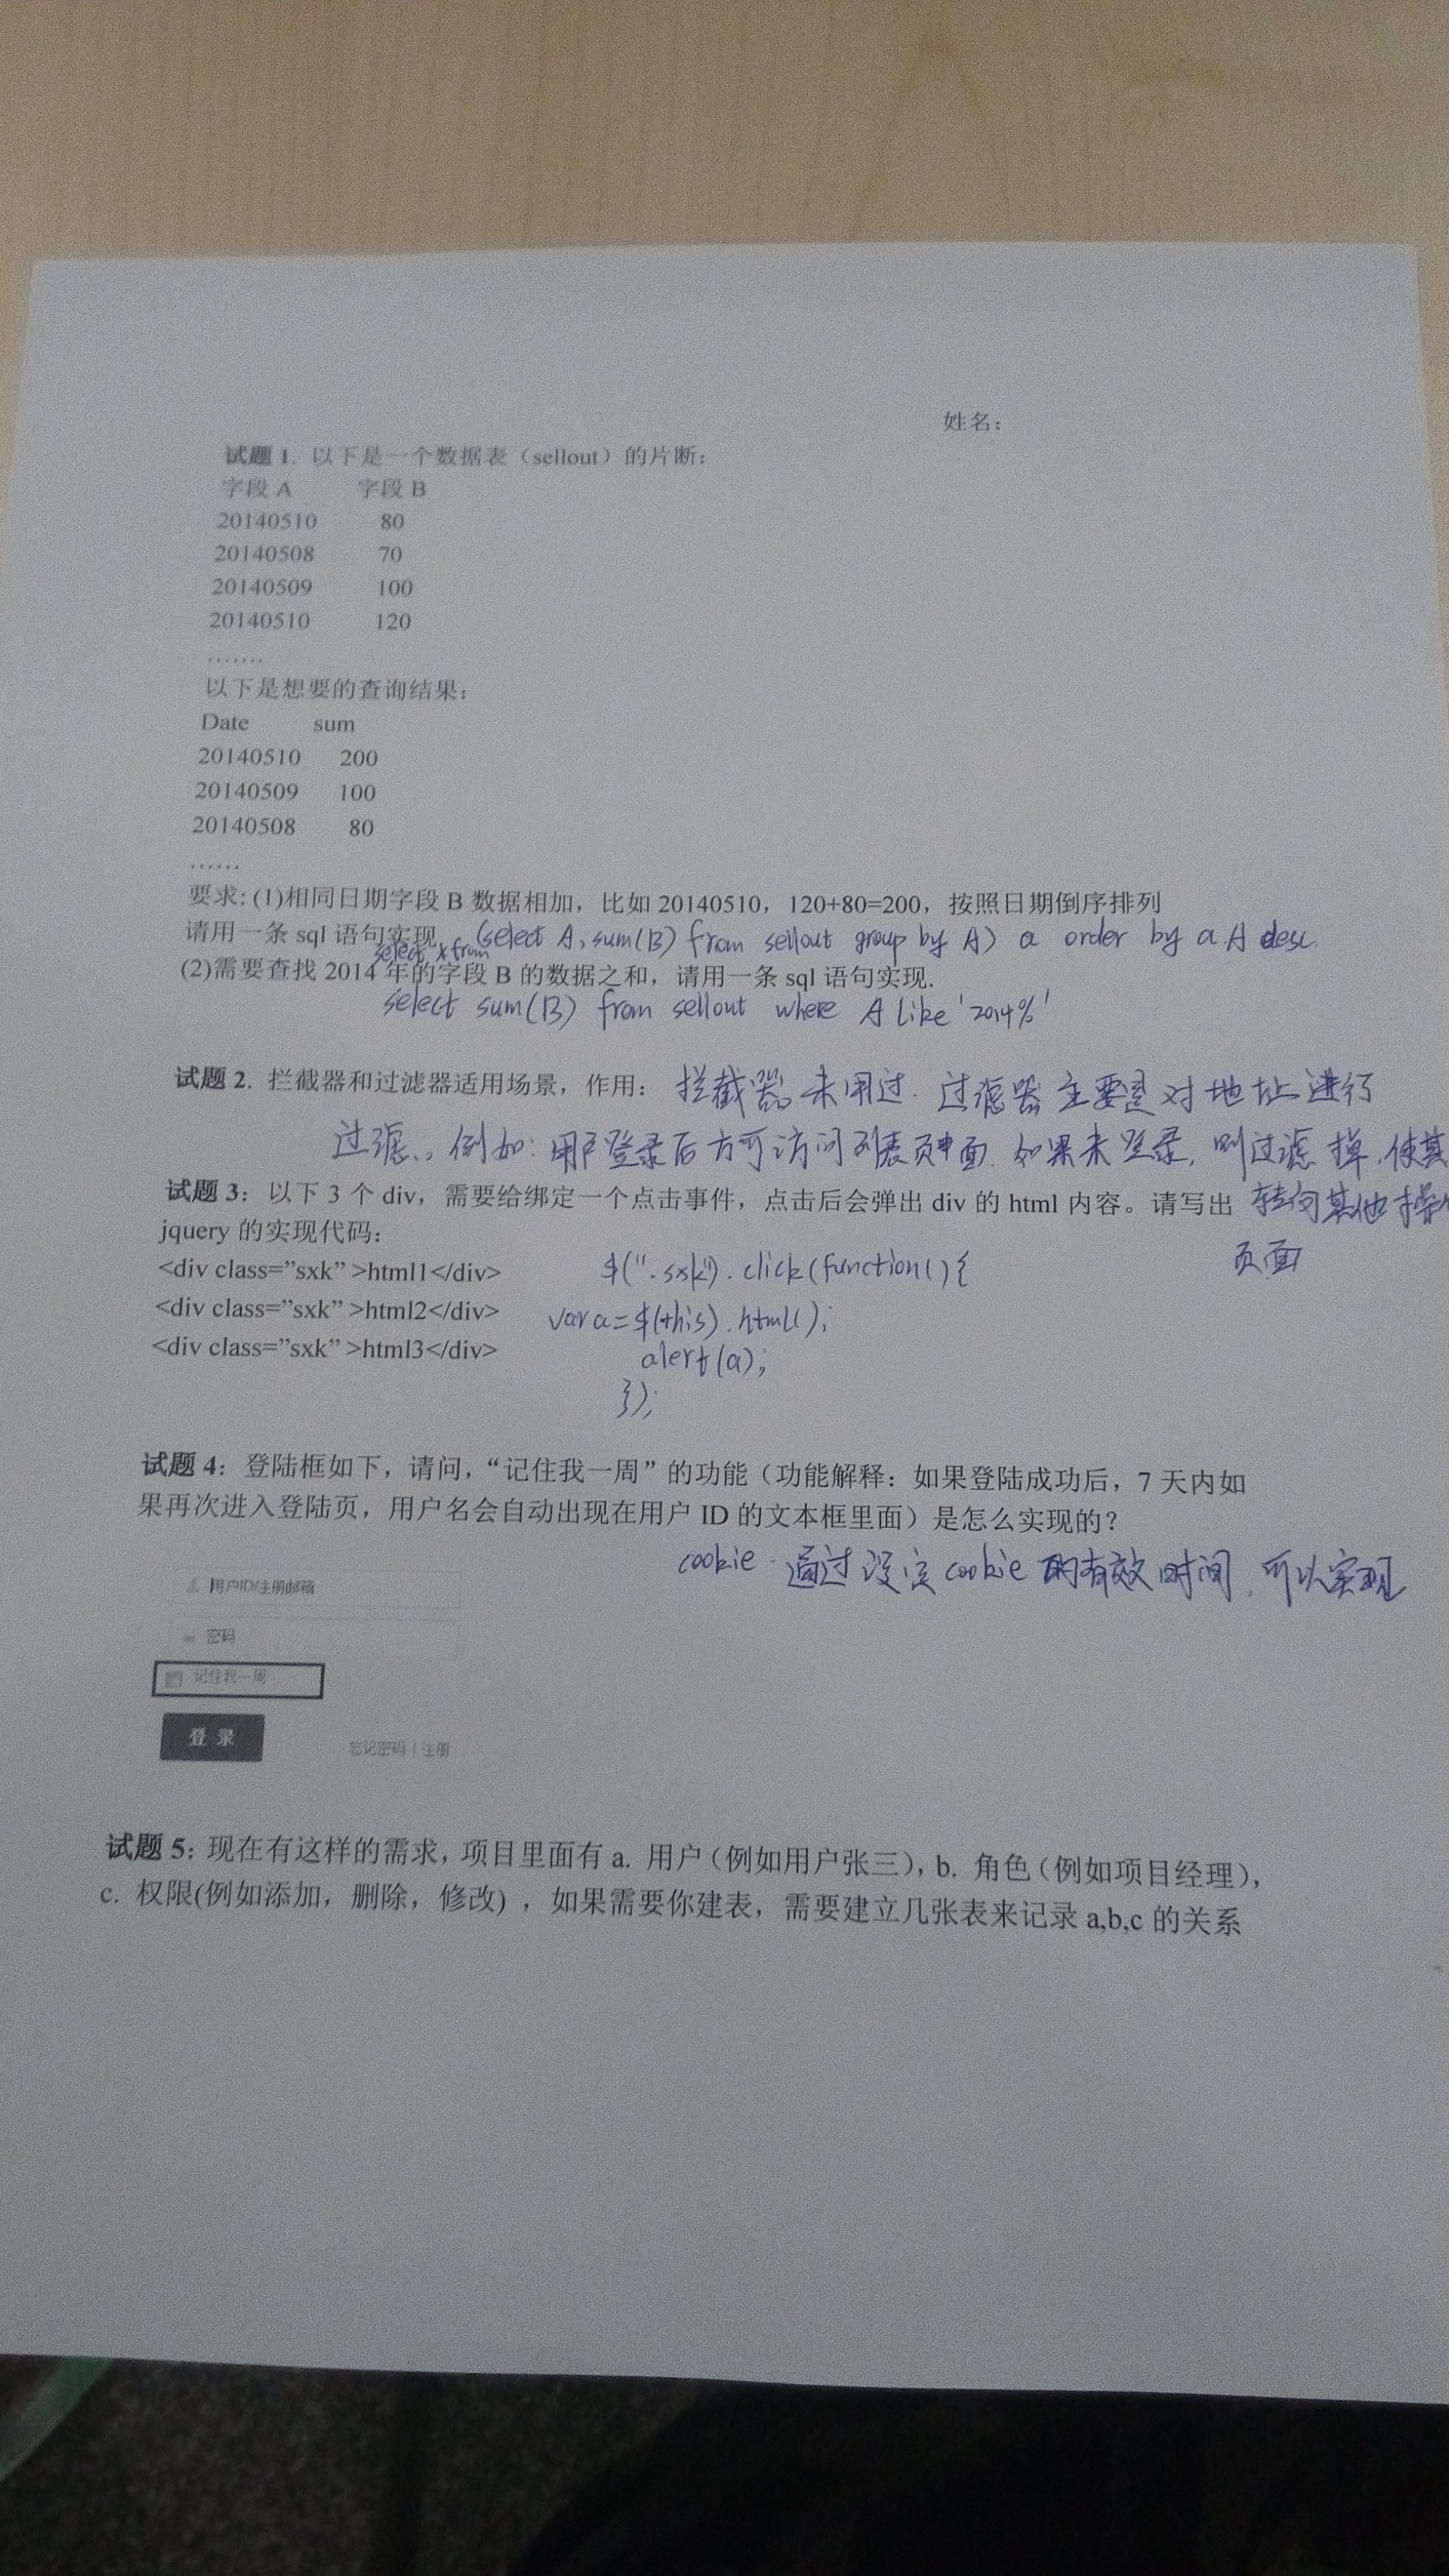 姓名：
试题 1. 以下是一个数据表（sellout）的片断：
字段 A 字段 B
20140510 80
20140508 70
20140509 100
20140510 120
.......
以下是想要的查询结果：
Date sum
20140510 200
20140509 100
20140508 80
......
要求: (1)相同日期字段 B 数据相加，比如 20140510，120+80=200，按照日期倒序排列
请用一条 sql 语句实现 select * from (select A, sum(B) from sellout group by A) a order by a.A desc.
(2)需要查找 2014 年的字段 B 的数据之和，请用一条 sql 语句实现.
select sum(B) from sellout where A like '2014%'
试题 2. 拦截器和过滤器适用场景，作用： 拦截器未用过. 过滤器主要是对地址进行
过滤., 例如: 用户登录后方可访问列表页面. 如果未登录, 则过滤掉, 使其
试题 3：以下 3 个 div，需要给绑定一个点击事件，点击后会弹出 div 的 html 内容。请写出 转向其他
jquery 的实现代码： 页面
<div class=”sxk” >html1</div> $(".sxk").click(function(){
<div class=”sxk” >html2</div> var a=$(this).html();
<div class=”sxk” >html3</div> alert(a);
});
试题 4：登陆框如下，请问，“记住我一周”的功能（功能解释：如果登陆成功后，7 天内如
果再次进入登陆页，用户名会自动出现在用户 ID 的文本框里面）是怎么实现的？
cookie. 通过设定cookie的有效时间, 可以实现
用户ID/注册邮箱
密码
记住我一周
登 录
忘记密码 | 注册
试题 5：现在有这样的需求，项目里面有 a. 用户（例如用户张三），b. 角色（例如项目经理），
c. 权限(例如添加，删除，修改) ，如果需要你建表，需要建立几张表来记录 a,b,c 的关系